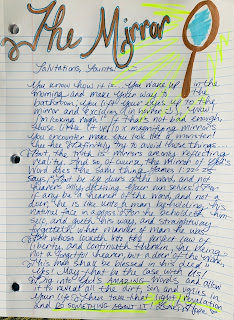 The Mirror
Salutations, Saints!
You know how it is. You wake up in the
morning, and make your way to the
bathroom, you lift your eyes up to the
mirror and exclaim (in horror), "Wow!
I'm looking rough!" If that's not bad enough,
those little lit up magnifying mirrors
you encounter make you look like a monster!
She has definitely to avoid those things.
But, the truth is mirrors among reflecting
reality. And so, of course, the Mirror of God's
Word does the same thing. James 1:22-25
says, "But be ye doers of the word, and not
hearers only, deceiving your own selves. For
if any be a hearer of the word, and not a
doer, he is like unto a man beholding his
natural face in a glass: For he beholdeth him-
self, and goeth his way, and straightway
forgetteth what manner of man he was.
But whoso looketh into the perfect law of
liberty, and continueth therein, he being
not a forgetful hearer, but a doer of the work,
this man shall be blessed in his deed."
Yes! May that be the case with us!
Dig into God's AMAZING Words, and allow
it to reveal all the dirt, sin, and ugliness in
your life. Then take that light/revelation
and DO SOMETHING ABOUT IT!